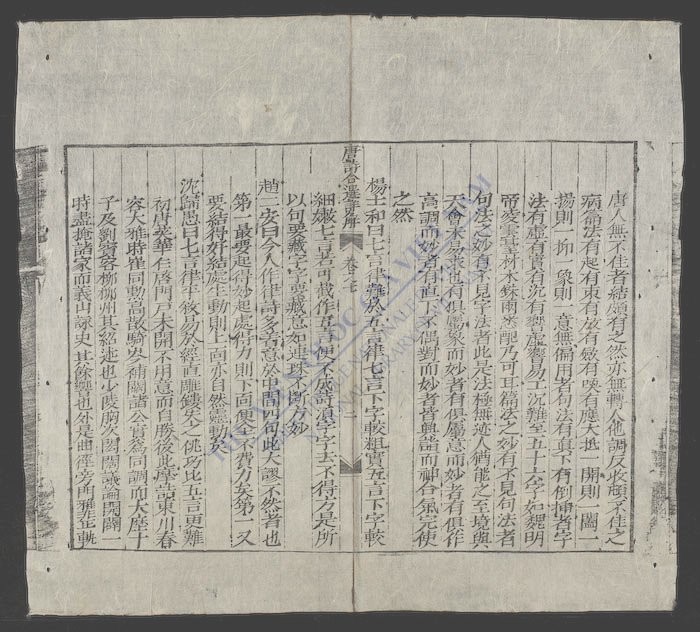 唐人無不佳者結頗有之然亦無轉入他調反收頓不佳之
病篇法有起有束有放有斂有喚有應大抵一開則一闔一
揚則一抑一象則一意無偏用者句法有直下有倒插者字
法有虛有實有沉有響虛響易工沉難至五十六字如魏明
帝凌雲臺材木銖兩悉配乃可耳篇法之妙有不見句法者
句法之妙有不見字法者此是法極無迹人猶能之至境與
天會未易求也有俱屬象而妙者有俱屬意而妙者有俱作
高調而妙者有直下不偶對而妙者皆興詣而神合氣完使
之然
楊士和曰七言律難於五言律七言下字較粗實五言下字較
唐詩合選詳解 卷之七
細嫩七言若可截作五言便不成詩須字字去不得方是所
以句要藏字字要藏意如連珠不斷方妙
趙二安曰今人作律詩多著意於中間四句此大謬不然者也
第一最要起得妙起處得力則下面便全不費力矣第一又
要結得好結處生動則上面亦自然靈動矣
沈歸愚曰七言律平敘易於徑直雕鏤失之佻巧比五言更難
初唐英華乍啓門戶未開不用意而自勝後此摩詰東川春
容大雅時崔司勳高散騎岑補闕諸公實為同調而大曆十
子及劉賓客柳柳州其紹述也少陵胸次閎闊議論開闢一
時盡掩諸家而義山詠史其餘響也外是曲徑旁門雅非正軌